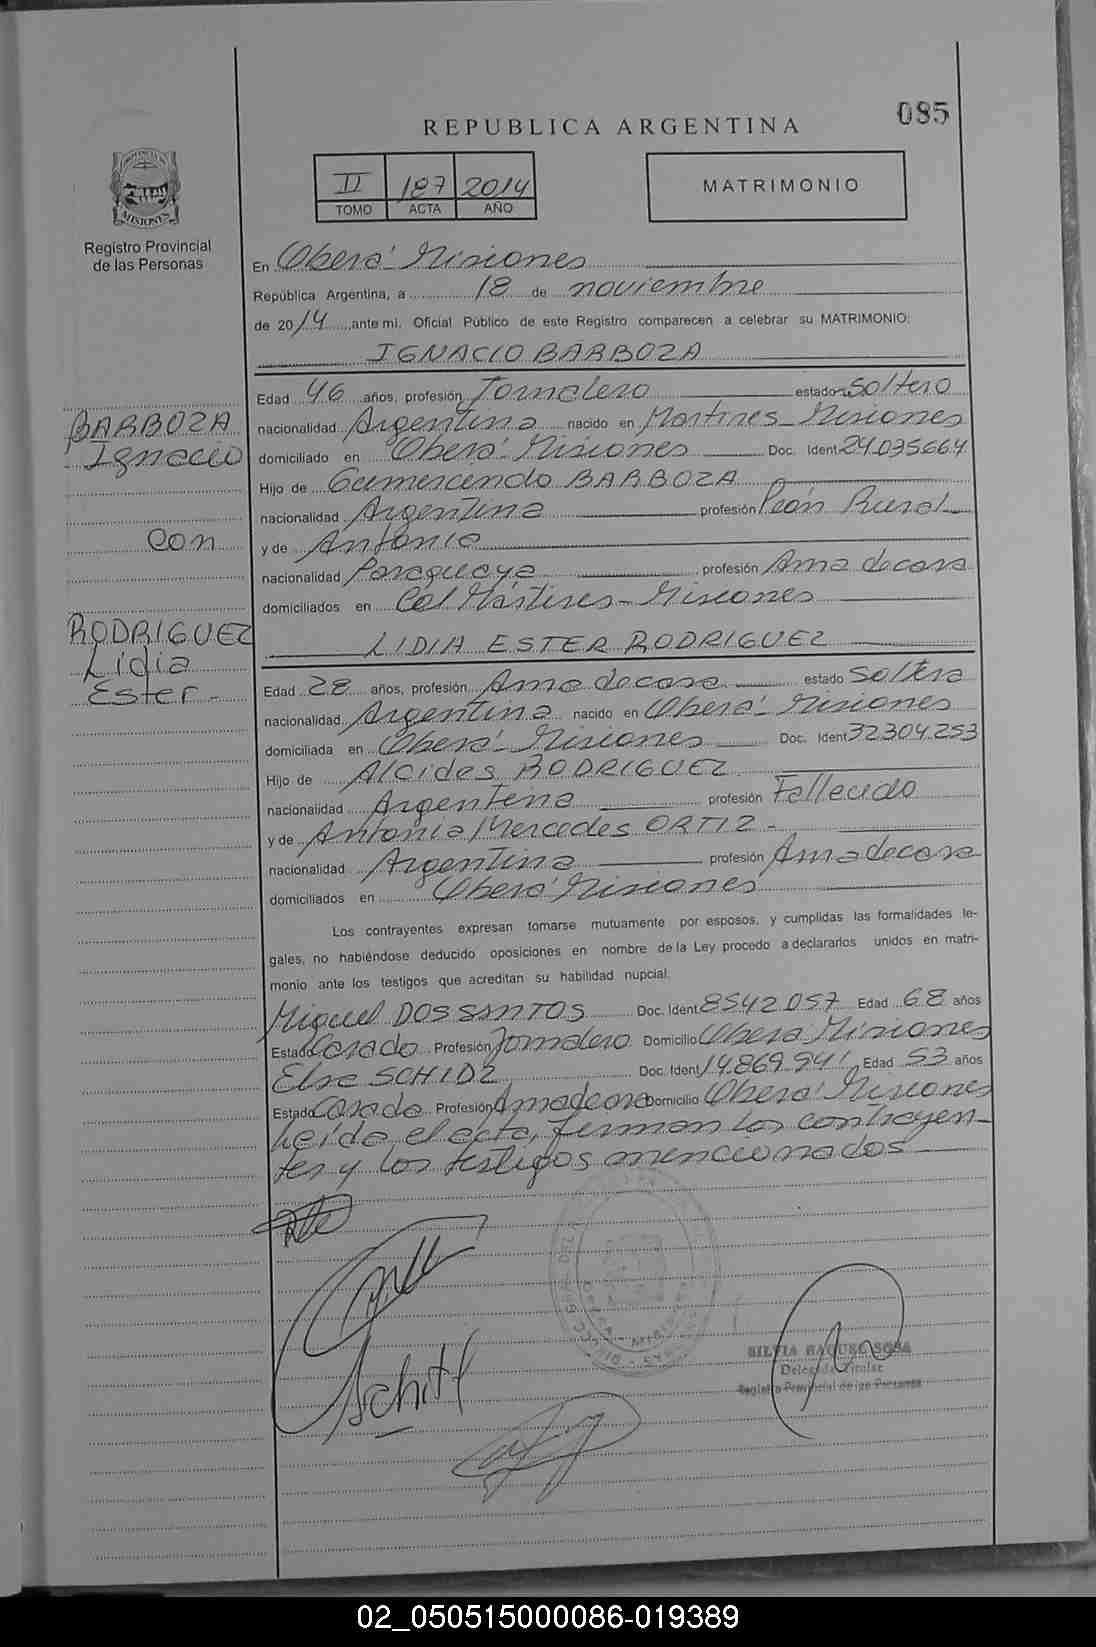 085
REPUBLICA ARGENTINA
II 187 2014
TOMO ACTA AÑO
MATRIMONIO
PROVINCIA DE
MISIONES
Registro Provincial
de las Personas
En Oberá - Misiones
República Argentina, a 18 de noviembre
de 2014, ante mi. Oficial Público de este Registro comparecen a celebrar su MATRIMONIO:
IGNACIO BARBOZA
Edad 46 años, profesión Jornalero estado Soltero
nacionalidad Argentina nacido en Martires - Misiones
domiciliado en Oberá - Misiones Doc. Ident 24.035.664
Hijo de Gumercindo BARBOZA
nacionalidad Argentina profesión Peón Rural
y de Antonia
nacionalidad Paraguaya profesión Ama de casa
domiciliados en Col Mártires - Misiones
LIDIA ESTER RODRIGUEZ
Edad 28 años, profesión Ama de casa estado Soltera
nacionalidad Argentina nacido en Oberá - Misiones
domiciliada en Oberá - Misiones Doc. Ident 32304.253
Hijo de Alcides RODRIGUEZ
nacionalidad Argentina profesión Fallecido
y de Antonia Mercedes ORTIZ -
nacionalidad Argentina profesión Ama de casa
domiciliados en Oberá Misiones
BARBOZA
Ignacio
con
RODRIGUEZ
Lidia
Ester -
Los contrayentes expresan tomarse mutuamente por esposos, y cumplidas las formalidades le-
gales, no habiéndose deducido oposiciones en nombre de la Ley procedo a declararlos unidos en matri-
monio ante los testigos que acreditan su habilidad nupcial.
Miguel DOS SANTOS Doc. Ident 8542057 Edad 68 años
Estado Casado Profesión Jornalero Domicilio Oberá Misiones
Elsa SCHIDZ Doc. Ident 14.869.941 Edad 53 años
Estado Casada Profesión Ama de casa Domicilio Oberá Misiones
Leída el acta, firman los contrayen-
tes y los testigos mencionados
SILVIA RAQUEL SOSA
Delegada Titular
Registro Provincial de las Personas
02_050515000086-019389